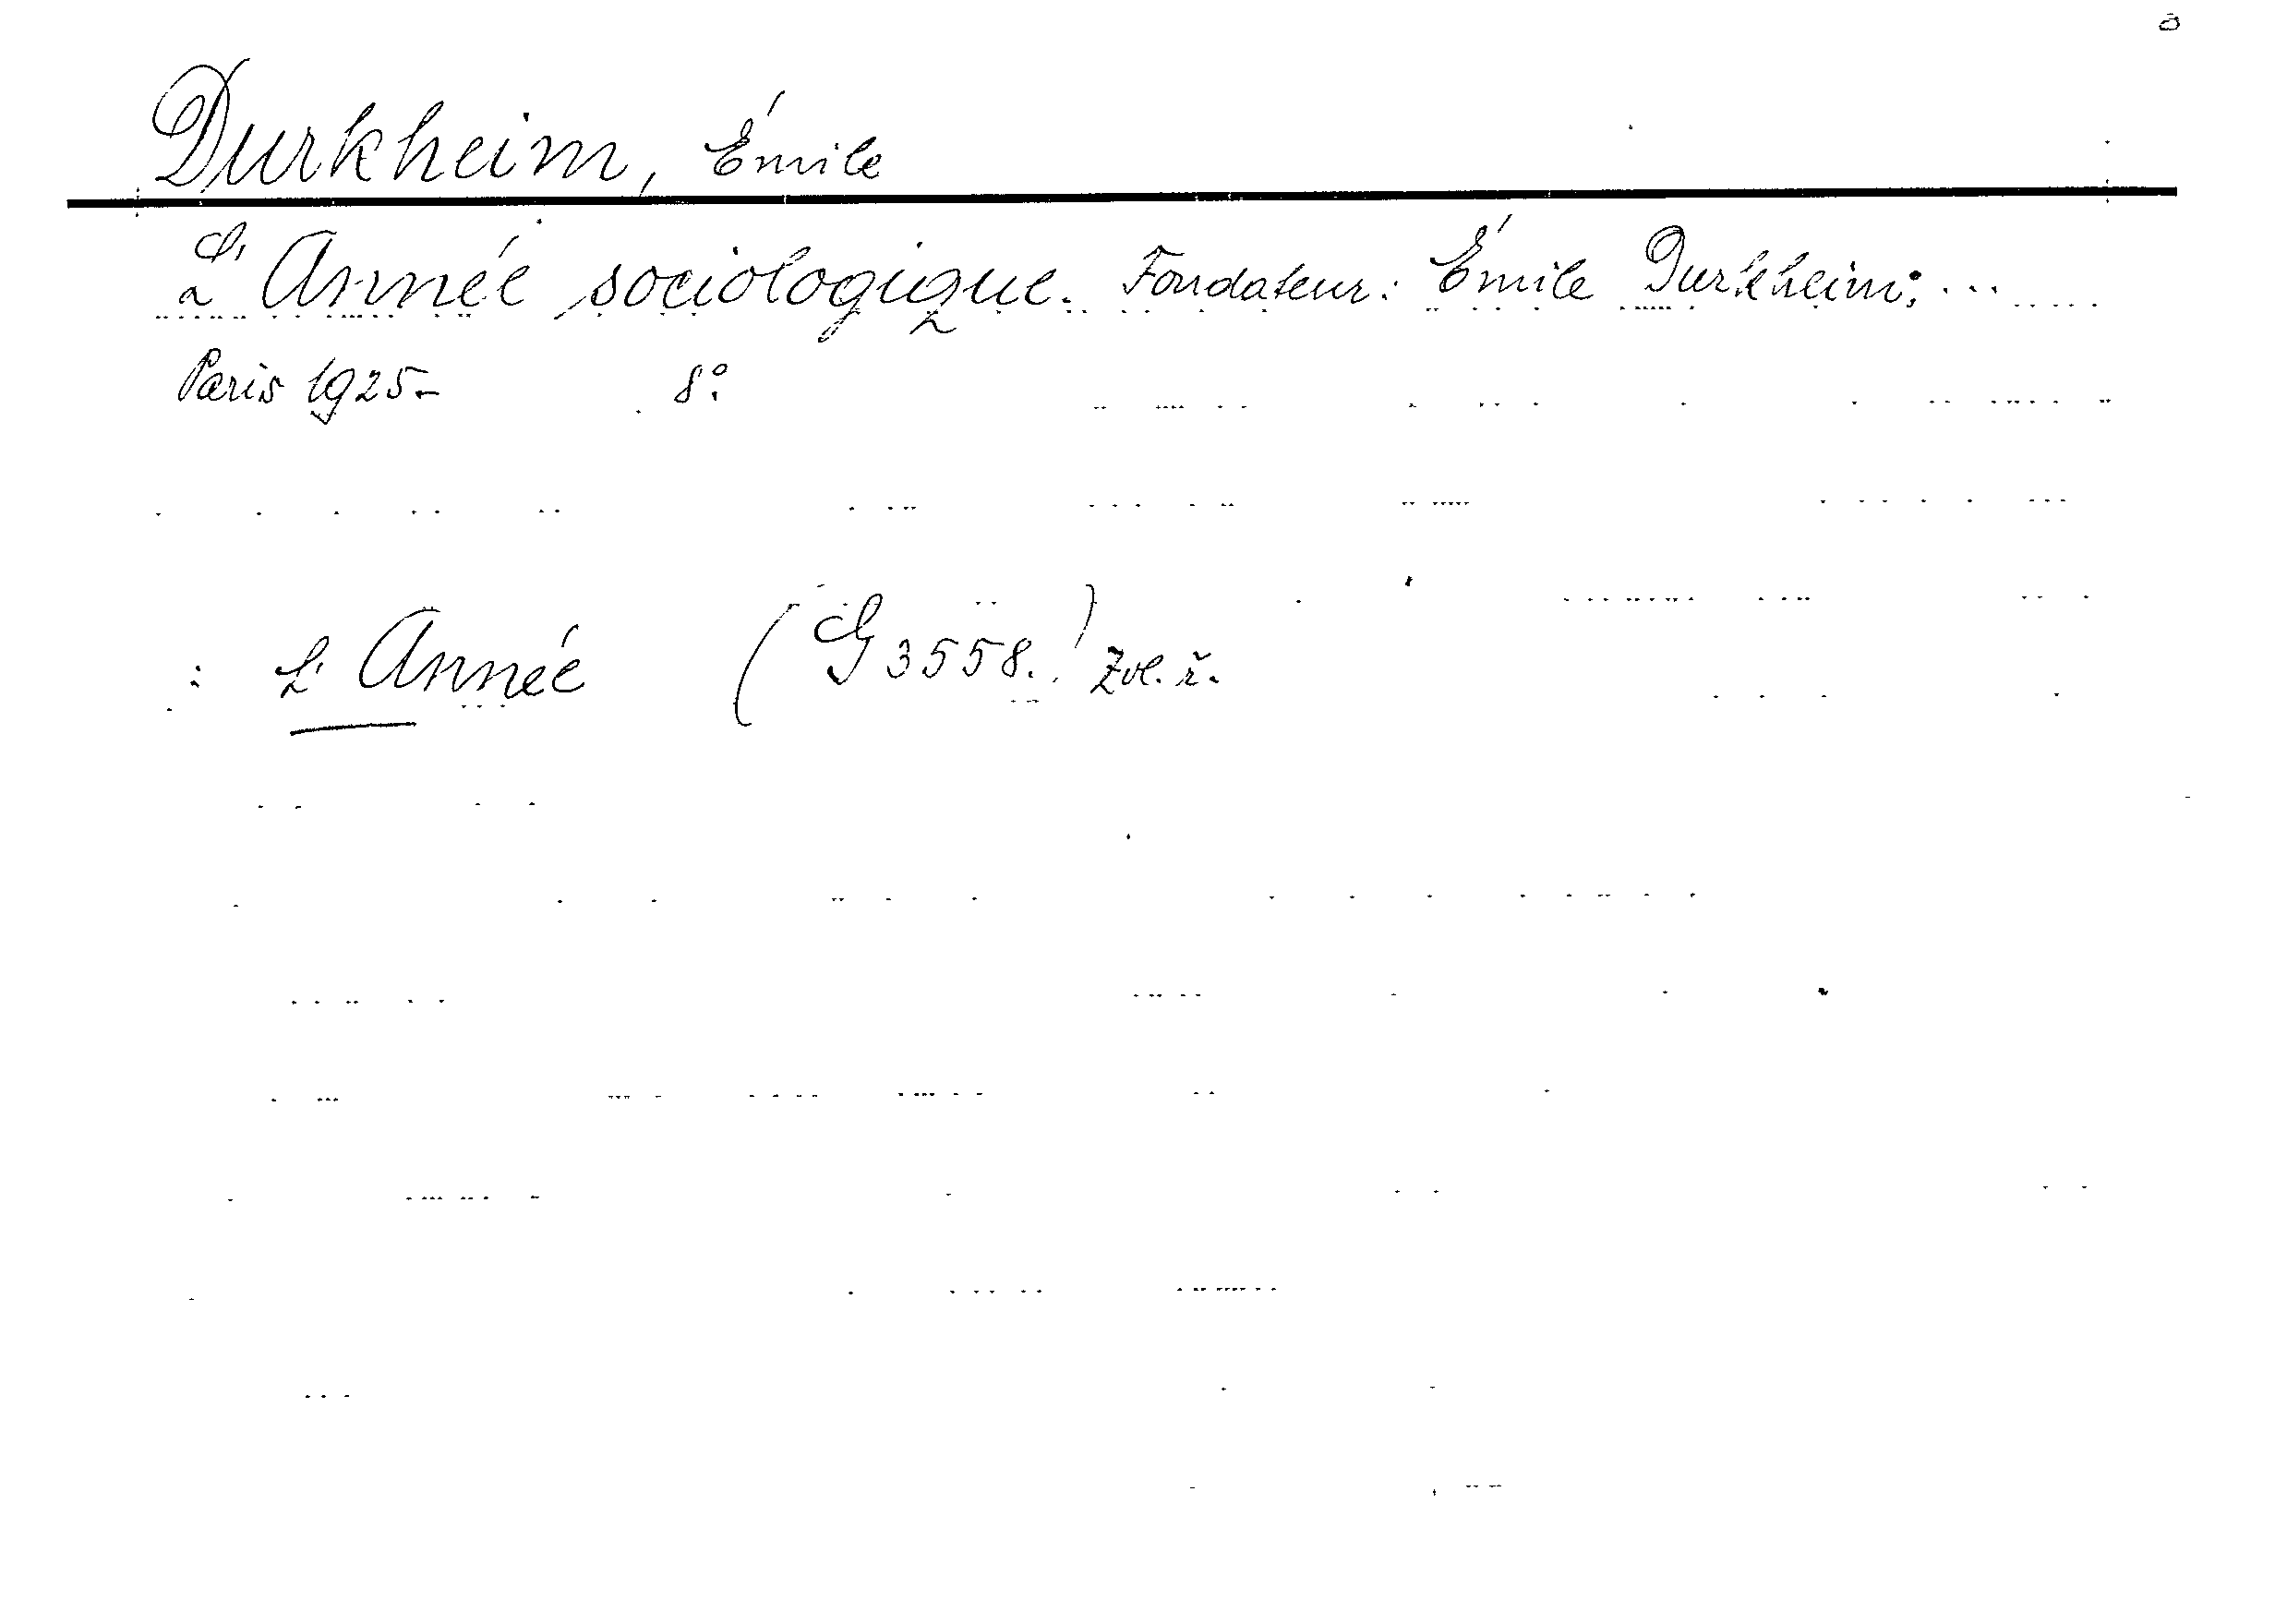 Durkheim, Émile
L'Année sociologique. Fondateur: Émile Durkheim; ...
Paris 1925- 8°.
: L'Année (G 3558.) zvl. ř.